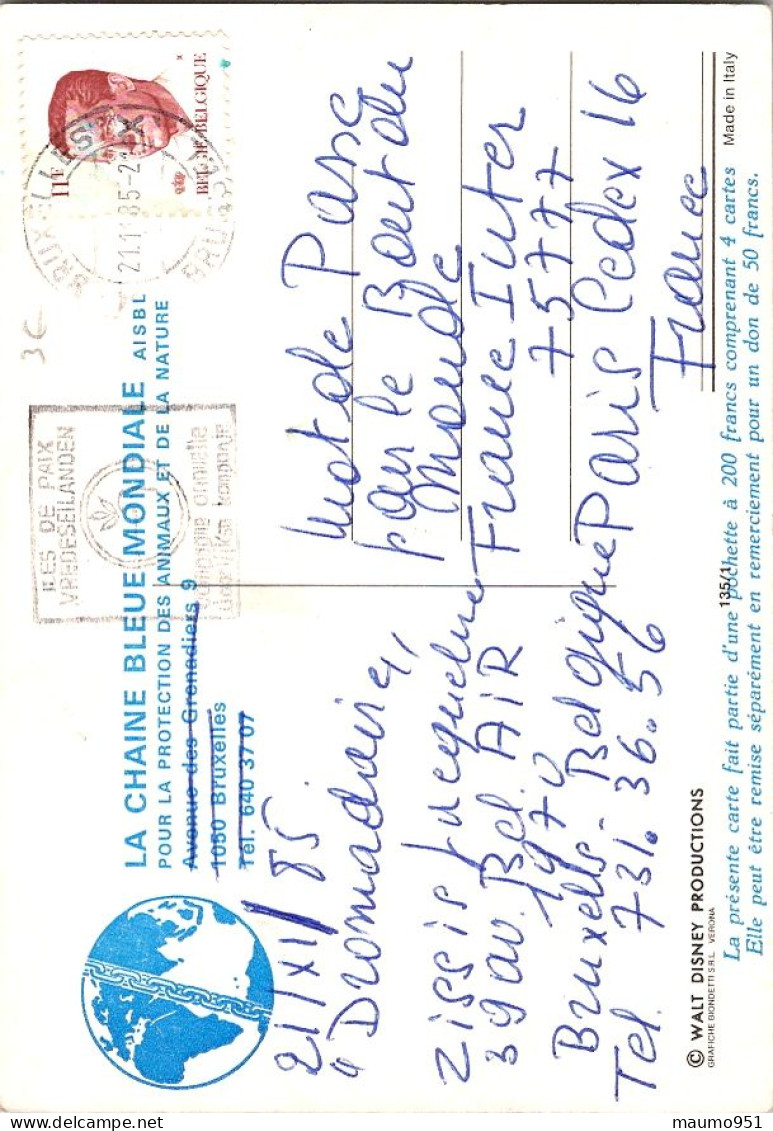 LA CHAINE BLEUE MONDIALE AISBL
POUR LA PROTECTION DES ANIMAUX ET DE LA NATURE
Avenue des Grenadiers 9
1050 Bruxelles
Tél. 640 37 07
21/XI/85
"Dromadaire,
Zissis Jacqueline
39 av. Bel. AIR
1970
Bruxells - Belgique
Tel. 731.36.56
© WALT DISNEY PRODUCTIONS
GRAFICHE BIONDETTI S.R.L. VERONA
135/1
ILES DE PAIX
VREDESEILANDEN
campagne annuelle
3€
BRUXELLES X
21.11.85-2
BRU
11F
BELGIE-BELGIQUE
x
Mot de Passe
pour le Bout du
Monde
France Inter
75777
Paris Cedex 16
France
Made in Italy
La présente carte fait partie d'une pochette à 200 francs comprenant 4 cartes
Elle peut être remise séparément en remerciement pour un don de 50 francs.
maumo951